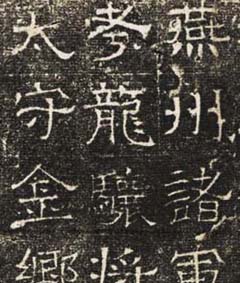 燕州諸軍
考龍驤將
太守金鄉